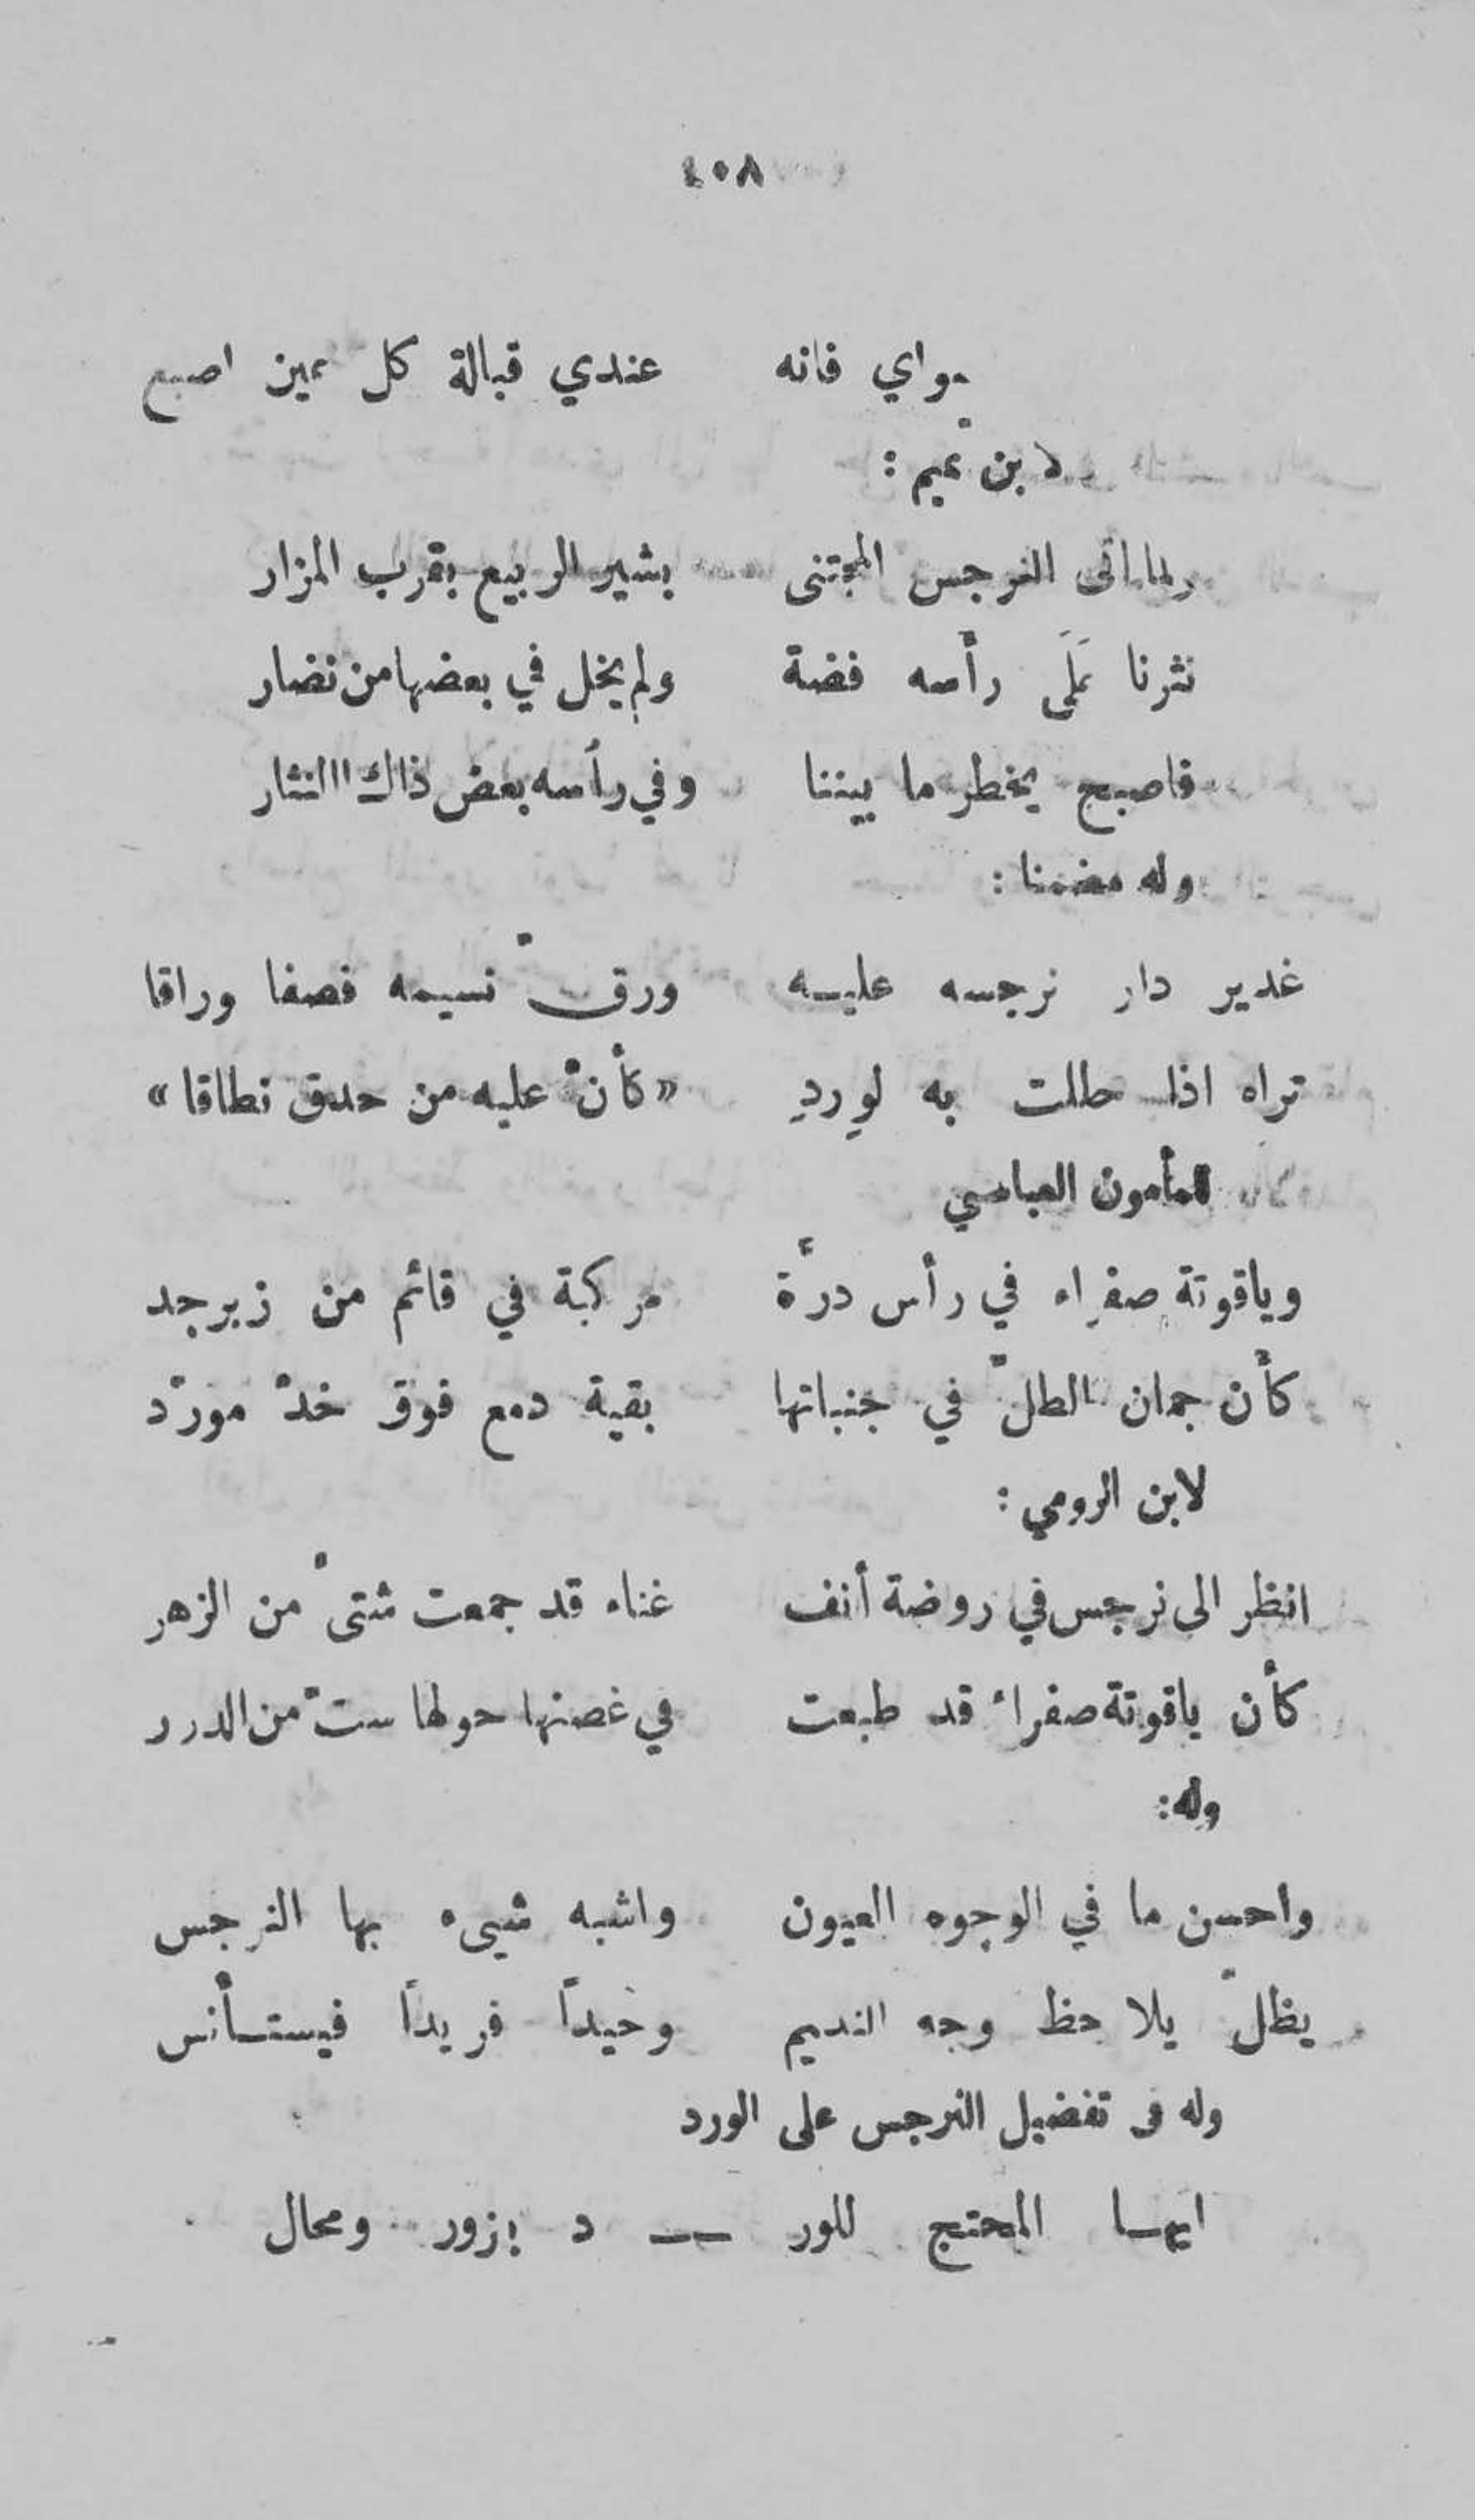 ١٠٨
يواي فانه عندي قبالة كل عين اصبع
لابن تميم :
ولما اتى النرجس المجتنى بشير الربيع بقرب المزار
نثرنا عَلَى رأسه فضة ولم يخل في بعضها من نضار
فاصبح يخطر ما بيننا وفي رأسه بعض ذاك النثار
وله مضمنا :
غدير دار نرجسه عليه ورقّ نسيمه فصفا وراقا
تراه اذا حللت به لوِردِ «كأنّ عليه من حدق نطاقا»
للمأمون العباسي
وياقوتة صفراء في رأس درّة مركبة في قائم من زبرجد
كأن جمان الطلّ في جنباتها بقية دمع فوق خدّ مورّد
لابن الرومي :
انظر الى نرجس في روضة أنف غناء قد جمعت شتىّ من الزهر
كأن ياقوتة صفراء قد طبعت في غصنها حولها ستّ من الدرر
وله:
واحسن ما في الوجوه العيون واشبه شيىء بها النرجس
يظلّ يلاحظ وجه النديم وحيداً فريداً فيستأنس
وله في تفضيل النرجس على الورد
ايها المحتج للور — د بزور ومحال